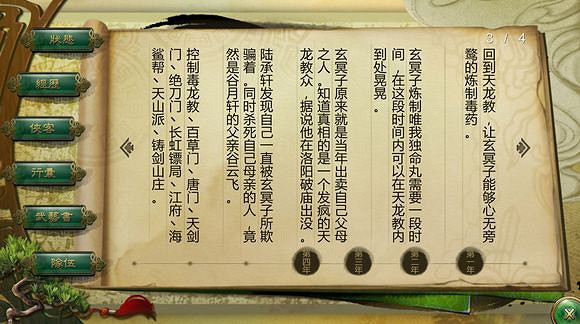 狀態
經歷
俠客
行囊
武藝書
隊伍
3 / 4
回到天龙教，让玄冥子能够心无旁
鹜的炼制毒药。
玄冥子炼制唯我独命丸需要一段时
间，在这段时间内可以在天龙教内
到处晃晃。
玄冥子原来就是当年出卖自己父母
之人。知道真相的是一个发疯的天
龙教众，据说他在洛阳破庙出没。
陆承轩发现自己一直被玄冥子所欺
骗着。同时杀死自己母亲的人，竟
然是谷月轩的父亲谷云飞。
控制毒龙教、百草门、唐门、天剑
门、绝刀门、长虹镖局、江府、海
鲨帮、天山派、铸剑山庄。
第一年
第二年
第三年
第四年